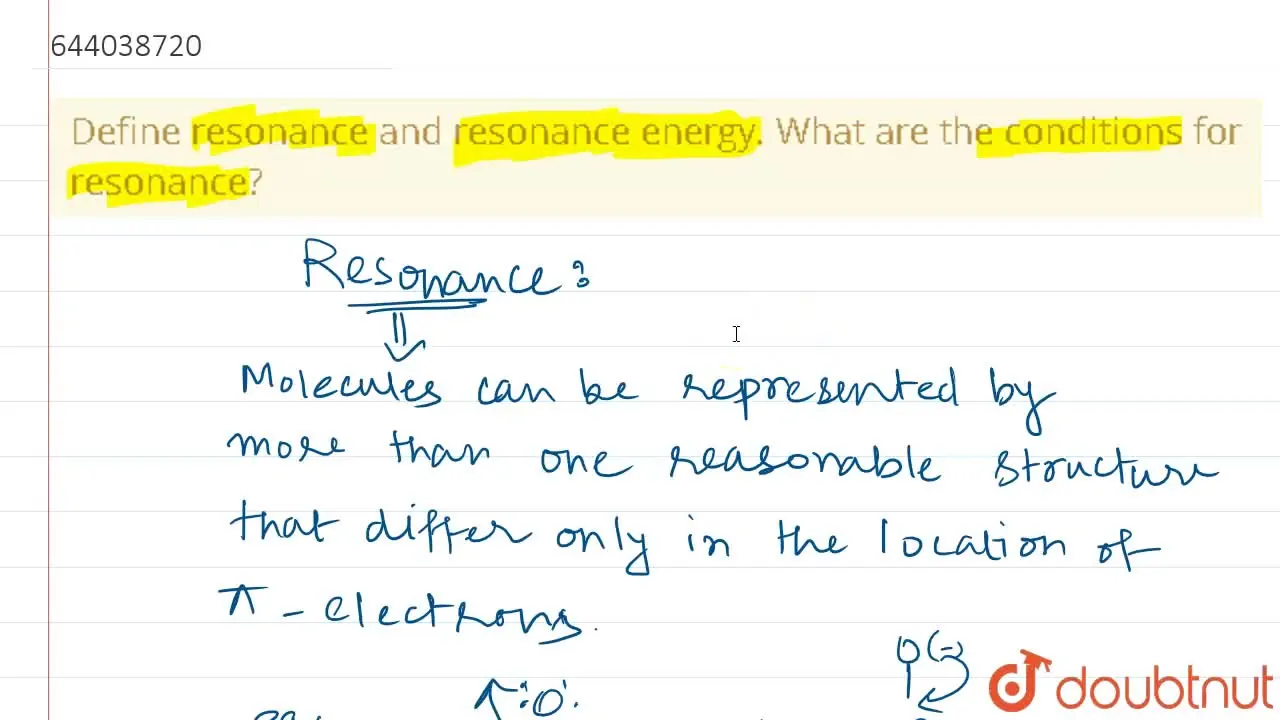 644038720
Define resonance and resonance energy. What are the conditions for
resonance?
Resonance:
Molecules can be represented by
more than one reasonable structure
that differ only in the location of
π - electrons.
O (-)
:O:
doubtnut